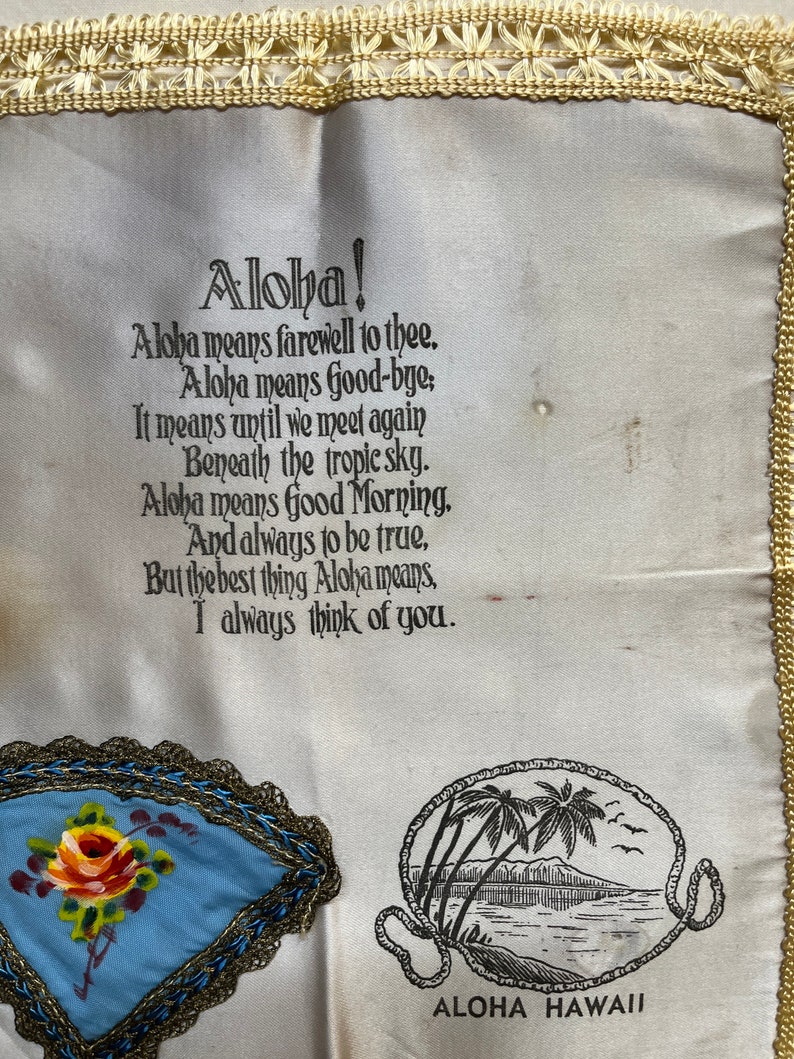 Aloha!
Aloha means farewell to thee,
Aloha means Good-bye;
It means until we meet again
Beneath the tropic sky.
Aloha means Good Morning,
And always to be true,
But the best thing Aloha means,
I always think of you.
ALOHA HAWAII